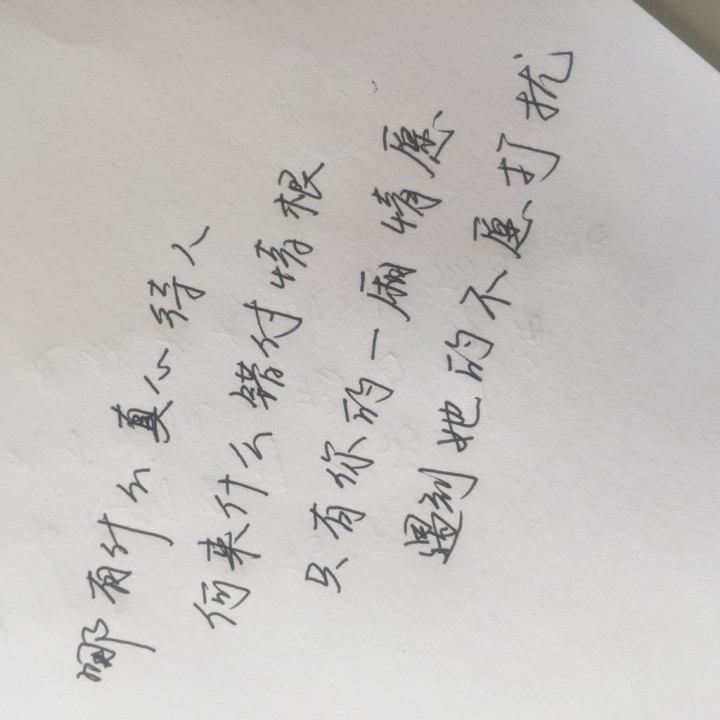 哪有什么真心待人
何来什么错付情根
只有你的一厢情愿
遇到她的不愿打扰